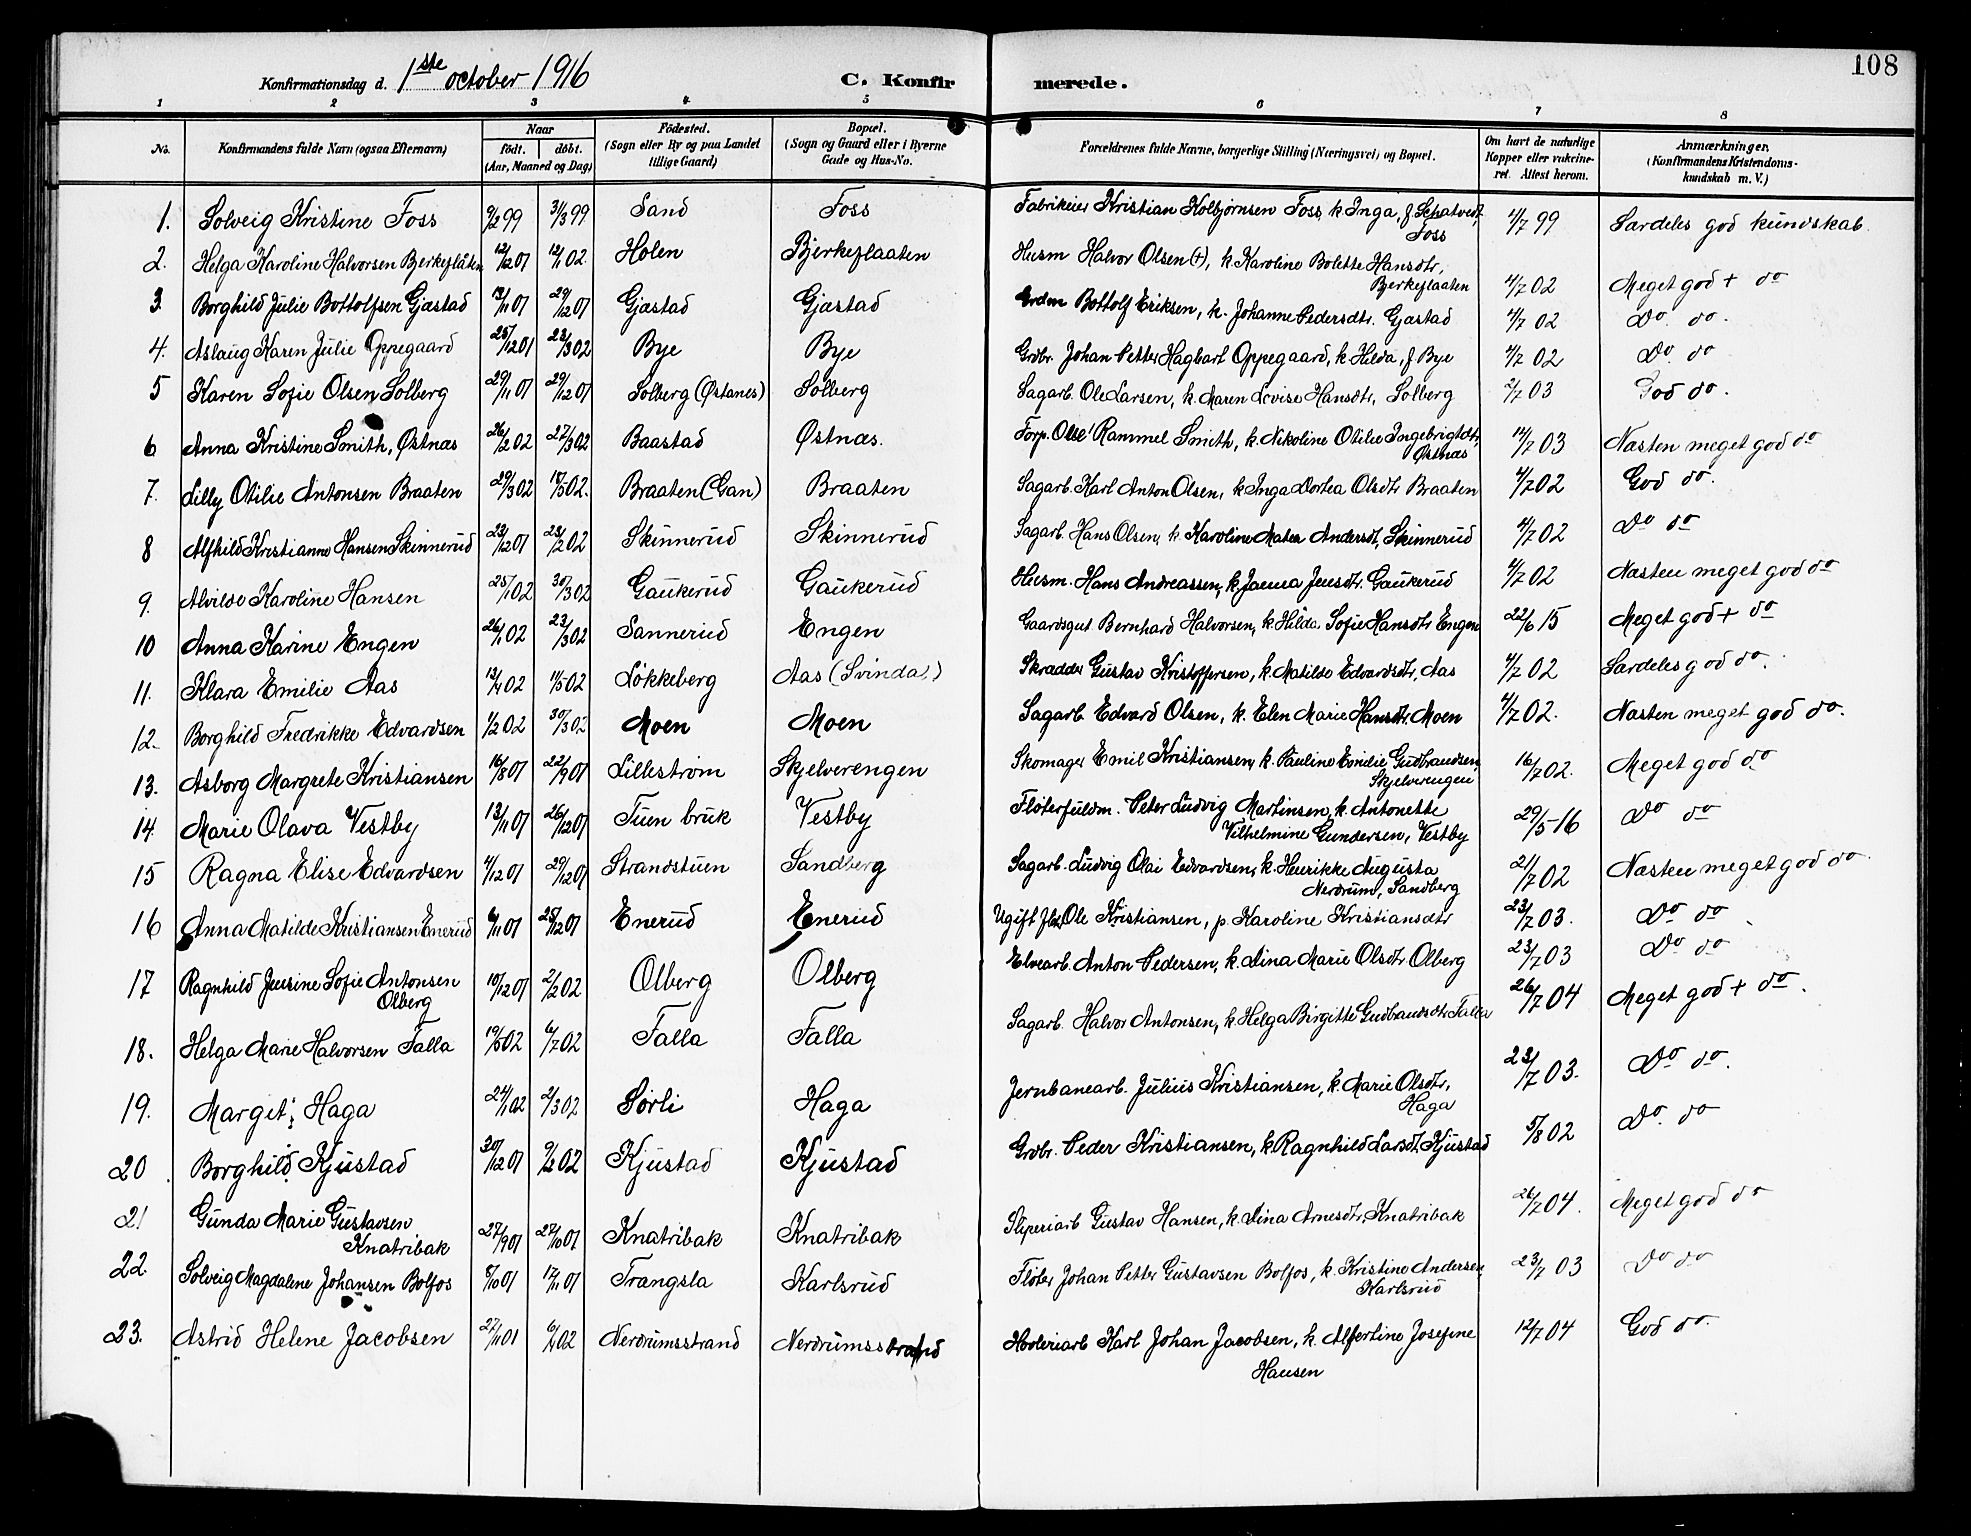 108
Konfirmationsdag d. 1ste october 1916 C. Konfirmerede.
1 2 3 4 5 6 7 8
No. Konfirmandens fulde Navn (ogsaa Efternavn) Naar født. døbt. (Aar, Maaned og Dag) Fødested. (Sogn eller By og paa Landet tillige Gaard) Bopæl. (Sogn og Gaard eller i Byerne Gade og Hus-No. Forældrenes fulde Navne, borgerlige Stilling (Næringsvei) og Bopæl. Om havt de naturlige Kopper eller vakcineret. Attest herom. Anmærkninger. (Konfirmandens Kristendomskundskab m. V.)
1. Solveig Kristine Foss 9/2 99 31/3 99 Sand Foss Fabrikeier Kristian Kolbjørnsen Foss, k. Inga, f. Foss 4/7 99 Særdeles god kundskab.
2. Helga Karoline Halvorsen Bjerkeflåten 12/12 01 12/1 02 Holen Bjerkeflaaten Husm Halvor Olsen (+), k. Karoline Bolette Hansdtr, Bjerkeflaaten 4/7 02 Meget god + do
3. Borghild Julie Bottolfsen Gjæstad 13/11 01 29/12 01 Gjæstad Gjæstad Grdm Bottolf Eriksen, k. Johanne Pedersdtr. Gjæstad 4/7 02 Do. do.
4. Aslaug Karen Julie Oppegaard 25/12 01 23/3 02 Bye Bye Grdbr. Johan Petter Hagbart Oppegaard, k. Hilda, f Bye 4/7 02 Do. do
5 Karen Sofie Olsen, Solberg 29/11 01 29/12 01 Solberg (Østanes) Solberg Sagarb. Ole Larsen, k. Maren Lovise Hansdtr, Solberg 2/7 03 God do.
6 Anna Kristine Smith, Østnæs 26/2 02 27/3 02 Baastad Østnæs. Forp. Rammel Smith, k. Nikoline Otilie Ingebrigtdtr, Østnæs 14/7 03 Næsten meget god do
7. Lilly Otilie Antonsen Braaten 29/3 02 18/5 02. Braaten (Gan) Braaten Sagarb. Karl Anton Olsen, k Inga Dortea Olsdtr Braaten 4/7 02 God do.
8 Alfhild Kristianne Hansen Skinnerud 23/12 01 23/2 02 Skinnerud Skinnerud Sagarb. Hans Olsen, k. Karoline Matea Andersdt, Skinnerud 4/7 02 Do do
9. Alvilde Karoline Hansen 25/1 02 30/3 02 Gaukerud Gaukerud Husm. Hans Andreassen, k. Jensdtr. Gaukerud 4/7 02 Næsten meget god do
10 Anna Karine Engen 26/1 02 23/3 02 Sannerud Engen Gaardsgut Bernhard Halvorsen, k. Hilda Sofie Hansdtr Engen 22/6 15 Meget god + do
11. Klara Emilie Aas 13/4 02 11/5 02 Løkkeberg Aas (Svindal) Skrædder Gustav Kristoffersen, k. Matilde Edvardsdtr, Aas 4/7 02 Særdeles god do.
12. Borghild Fredrikke Edvardsen 1/2 02 30/3 02 Moen Moen Sagarb. Edvard Olsen, k. Elen Marie Hansdtr. Moen 4/7 02. Næsten meget god do.
13. Asborg Margrete Kristiansen 16/8 01 22/9 01 Lillestrøm Skjelverengen Skomager Emil Kristiansen, k. Pauline Emilie Gudbrandsen, Skjelverengen 16/7 02. Meget god do
14. Marie Olava Vestby 13/11 01 26/12 01 Tuen bruk Vestby Fløterfuldm. Peter Ludvig Martinsen, k. Antonette Vilhelmine Gundersen, Vestby 29/5-16 Do do
15 Ragna Elise Edvardsen 4/12 01 29/12 01 Strandstuen Sandberg Sagarb. Ludvig Olai Edvardsen, k. Henrikke Augusta Nerdrum, Sandberg 21/7 02 Næsten meget god do.
16 Anna Matilde Kristiansen Enerud 6/11 01 25/12 01 Enerud Enerud Ugift Ole Kristiansen, p. Karoline Kristiansdtr 23/7 03. Do do
17 Ragnhild Jensine Sofie Antonsen Olberg 10/12 01 2/2 02 Olberg Olberg Elvearb. Anton Pedersen, k. Lina Marie Olsdtr Olberg 23/7 03 Do do
18. Helga Marie Halvorsen Falla 19/5 02 6/7 02 Falla Falla Sagarb. Halvor Antonsen, k. Helga Birgitte Gudbrandsdtr Falla 26/7 04 Meget god + do.
19. Margit Haga 24/1 02 2/3 02 Sørli Haga Jernbanearb. Julius Kristiansen, k. Marie Olsdtr, Haga 23/7 03. Do do.
20. Borghild Kjustad 30/12 01 9/2 02 Kjustad Kjustad Grdbr. Peder Kristiansen, k. Ragnhild Larsdt Kjustad 5/8 02 Do. do
21 Gunda Marie Gustavsen Knatribak 27/9 01 27/10 01 Knatribak Knatribak Sliperiarb Gustav Hansen, k. Lina Arnesdtr, Knatribak 26/7 04. Meget god do
22. Solveig Magdalene Johansen Bolfos 8/10 01 17/11 01 Trangsla Karlsrud Fløter Johan Petter Gustavsen Bolfos, k. Kristine Andersen, Karlsrud 23/7 03 Do do
23. Astrid Helene Jacobsen 27/11 01 6/4 02 Nerdrumsstrand Nerdrumsstrand Høvleriarb Karl Johan Jacobsen, k. Josefine Hansen 12/7 04 God do.